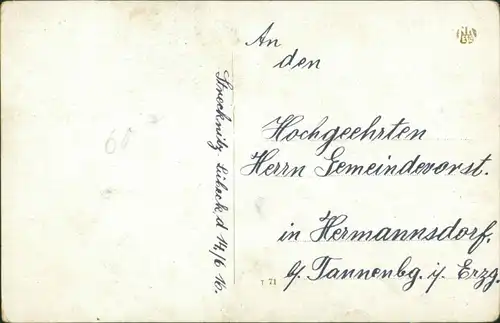 An
den
Hochgeehrten
Herrn Gemeindevorst.
in Hermannsdorf.
b/ Tannenbg. i/ Erzg.
Lübeck, d 14/6 16.
T 71